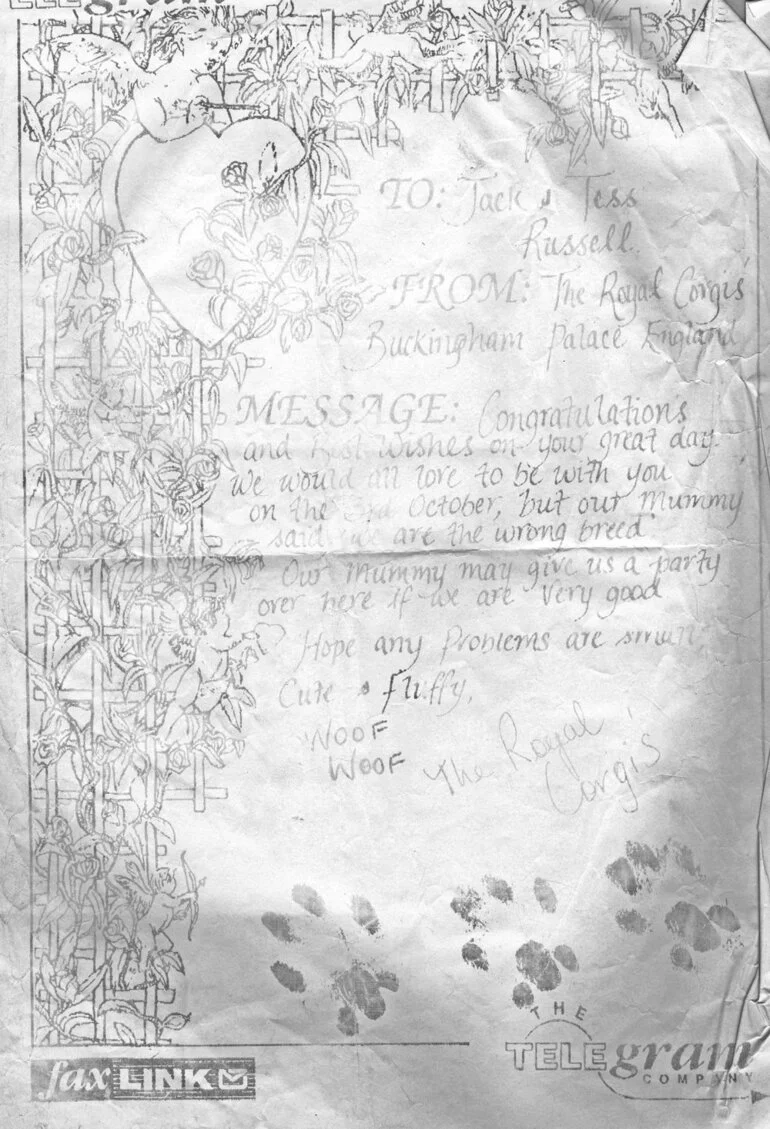 TELEgram
TO: Jack & Tess
Russell.
FROM: The Royal Corgis
Buckingham Palace England
MESSAGE: Congratulations
and Best Wishes on your great day.
We would all love to be with you
on the 3rd October, but our Mummy
said we are the wrong breed.
Our Mummy may give us a party
over here if we are very good
Hope any Problems are small,
Cute & fluffy.
WOOF
WOOF
The Royal
Corgis
THE
TELEgram
COMPANY
fax LINK